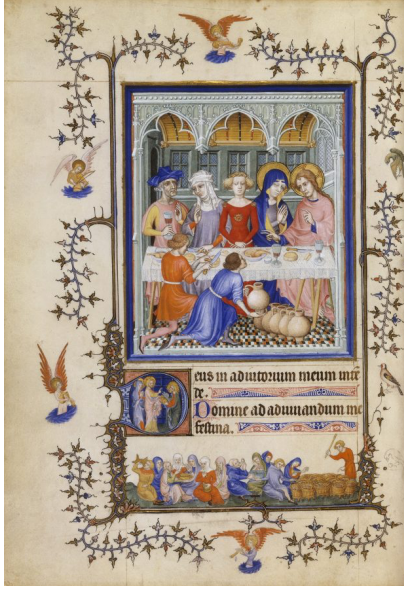 eus in adiutorium meum inte
de.
Domine ad adiuuandum me
festina.